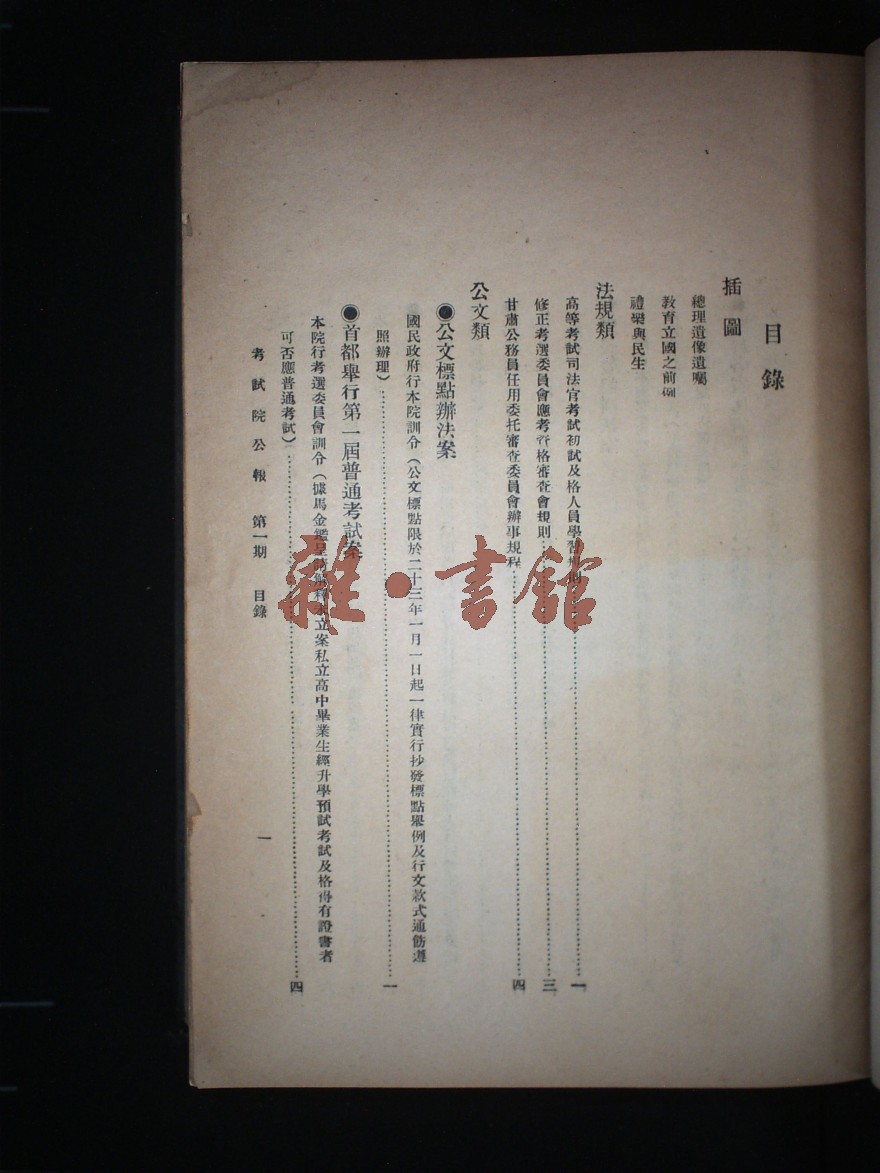 目錄
插圖
總理遺像遺囑
教育立國之前例
禮樂與民生
法規類
高等考試司法官考試初試及格人員學習規則……一
修正考選委員會應考資格審查會規則……三
甘肅公務員任用委托審查委員會辦事規程……四
公文類
●公文標點辦法案
國民政府行本院訓令（公文標點限於二十三年一月一日起一律實行抄發標點舉例及行文款式通飭遵
照辦理）……一
●首都舉行第一屆普通考試案
本院行考選委員會訓令（據馬金鑑呈請解釋未立案私立高中畢業生經升學預試考試及格得有證書者
可否應普通考試）……四
考試院公報 第一期 目錄
一
雜·書館